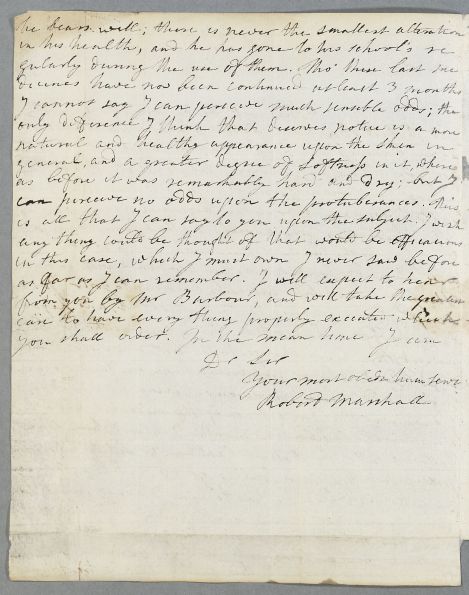 he bears well; there is never the smallest alteration
in his health, and he has gone to his school's re
gularly during the use of them. Tho' these last me
dicines have now been continued at least 3 months
I cannot say I can perceive much sensible odds; the
only difference I think that deserves notice is a more
natural and healthy appearance upon the Skin in
general, and a greater degree of Softness in it, where
as before it was remarkably hard and dry; but I
can perceive no odds upon the protuberances. This
is all that I can say to you upon the subject. I wish
any thing could be thought of that would be efficacious
in this case, which I must own I never saw before
as far as I can remember. I will expect to hear
from you by Mr Barbour, and will take the greatest
care to have every thing properly executed which
you shall order. In the mean time I am
Dr Sir
Your most obdt hum Servt
Robert Marshall